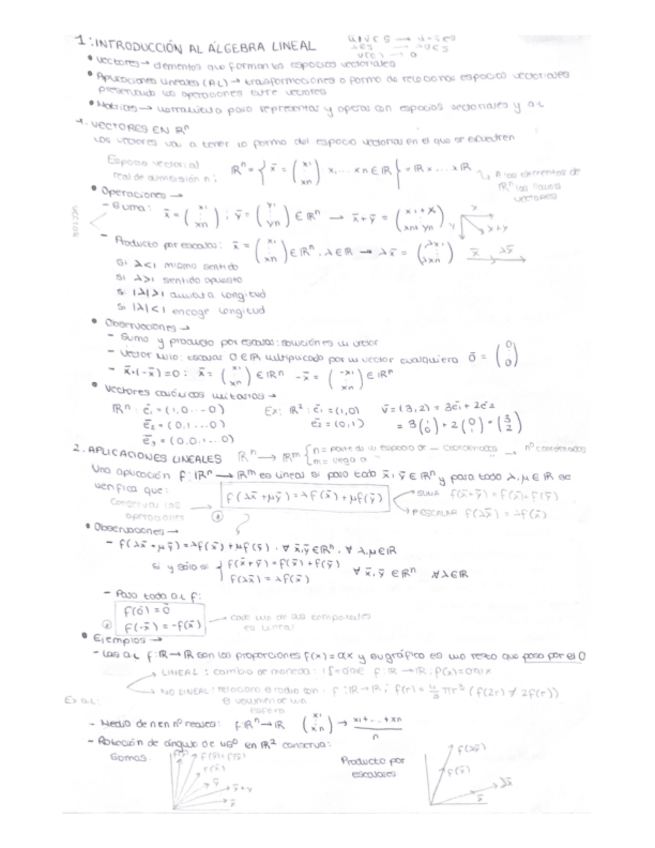 1: INTRODUCCIÓN AL ÁLGEBRA LINEAL
• Vectores → elementos que forman los espacios vectoriales
• Aplicaciones lineales (AL) → transformaciones o forma de relacionar espacios vectoriales
las operaciones entre vectores
• Matrices → herramienta para representar y operar con espacios vectoriales y AL
1. VECTORES EN ℝⁿ
Los vectores van a tener la forma del espacio vectorial en el que se encuentren
Espacio vectorial
real de dimensión n: ℝⁿ = { x̄ = (x₁ ⋮ xn) x₁...xn ∈ ℝ } = ℝ x ... x ℝ
n los elementos de
ℝⁿ los llama
vectores
• Operaciones →
- Suma: x̄ = (x₁ ⋮ xn) ; ȳ = (y₁ ⋮ yn) ∈ ℝⁿ → x̄+ȳ = (x₁+y₁ ⋮ xn+yn)
- Producto por escalar: x̄ = (x₁ ⋮ xn) ∈ ℝⁿ, λ ∈ ℝ → λx̄ = (λx₁ ⋮ λxn) x̄ λx̄
Si λ<1 mismo sentido
Si λ>1 sentido opuesto
Si |λ|>1 aumenta longitud
Si |λ|<1 encoge longitud
• Observaciones →
- Suma y producto por escalar: un vector
- Vector nulo: escalar 0 ∈ ℝ multiplicado por un vector cualquiera 0̄ = (0 ⋮ 0)
- x̄+(-x̄)=0 : x̄ = (x₁ ⋮ xn) ∈ ℝⁿ -x̄ = (-x₁ ⋮ -xn) ∈ ℝⁿ
• Vectores canónicos unitarios →
ℝⁿ: ē₁ = (1,0...0) Ex: ℝ²: ē₁ = (1,0) v̄ = (3,2) = 3ē₁ + 2ē₂
ē₂ = (0,1...0) ē₂ = (0,1) = 3(1 0) + 2(0 1) = (3 2)
ē₃ = (0,0,1...0)
2. APLICACIONES LINEALES ℝⁿ → ℝᵐ { n = parte de un espacio de — coordenadas → nº coordenadas
m = llega a "
Una aplicación f: ℝⁿ → ℝᵐ es lineal si para todo x̄, ȳ ∈ ℝⁿ y para todo λ, μ ∈ ℝ se
verifica que: f(λx̄+μȳ) = λf(x̄)+μf(ȳ) SUMA f(x̄+ȳ) = f(x̄)+f(ȳ)
Conserva las
operaciones P.ESCALAR f(λx̄) = λf(x̄)
• Observaciones →
- f(λx̄+μȳ) = λf(x̄)+μf(ȳ), ∀ x̄,ȳ ∈ ℝⁿ, ∀ λ,μ ∈ ℝ
si y sólo si { f(x̄+ȳ) = f(x̄)+f(ȳ) ∀ x̄,ȳ ∈ ℝⁿ ∀λ ∈ ℝ
f(λx̄) = λf(x̄)
- Para toda AL f:
f(0̄) = 0̄
f(-x̄) = -f(x̄) cada una de sus componentes
es lineal
• Ejemplos →
- Las AL f: ℝ → ℝ son las proporciones f(x) = ax y su gráfico es una recta que pasa por el 0
LINEAL: cambio de moneda: f: ℝ → ℝ
NO LINEAL: relaciona el radio con. f: ℝ → ℝ; f(r) = 4/3 πr³ (f(2r) ≠ 2f(r))
Ex AL: el volumen de una
esfera
- Media de n en nº reales: f: ℝⁿ → ℝ (x₁ ⋮ xn) → x₁+...+xn / n
- Rotación de ángulo de 45º en ℝ² conserva:
Sumas Producto por
escalares
f(x̄)+f(ȳ) f(ȳ) x̄+ȳ x̄
f(λx̄) f(x̄) λx̄ x̄